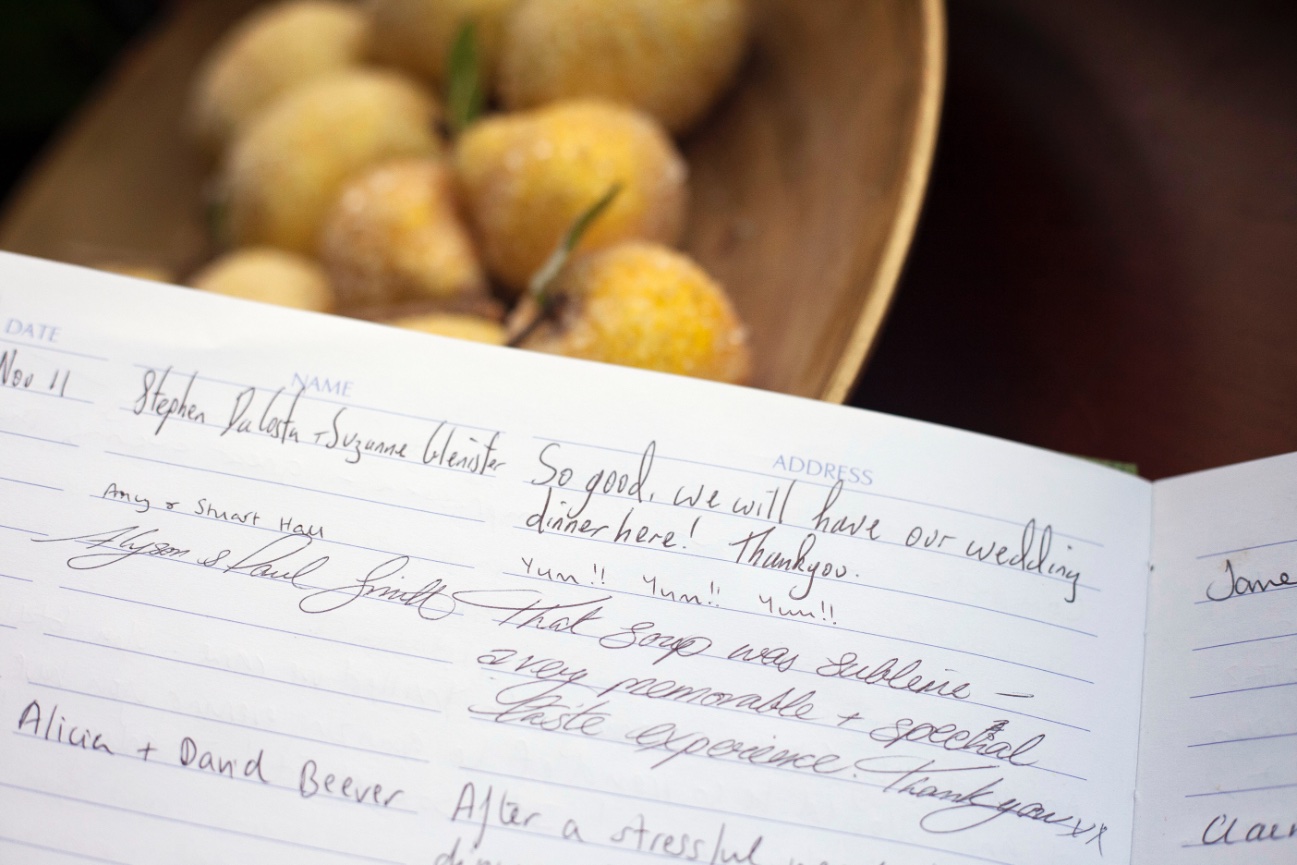 DATE NAME ADDRESS
Nov 11 Stephen DaCosta + Suzanne Glenister So good, we will have our wedding
dinner here! Thankyou.
Amy & Stuart Hall Yum!! Yum!! Yum!!
Alyson & Paul Smith That soup was sublime –
a very memorable + special
taste experience. Thank you xx
Alicia + David Beever After a stressful
Jane